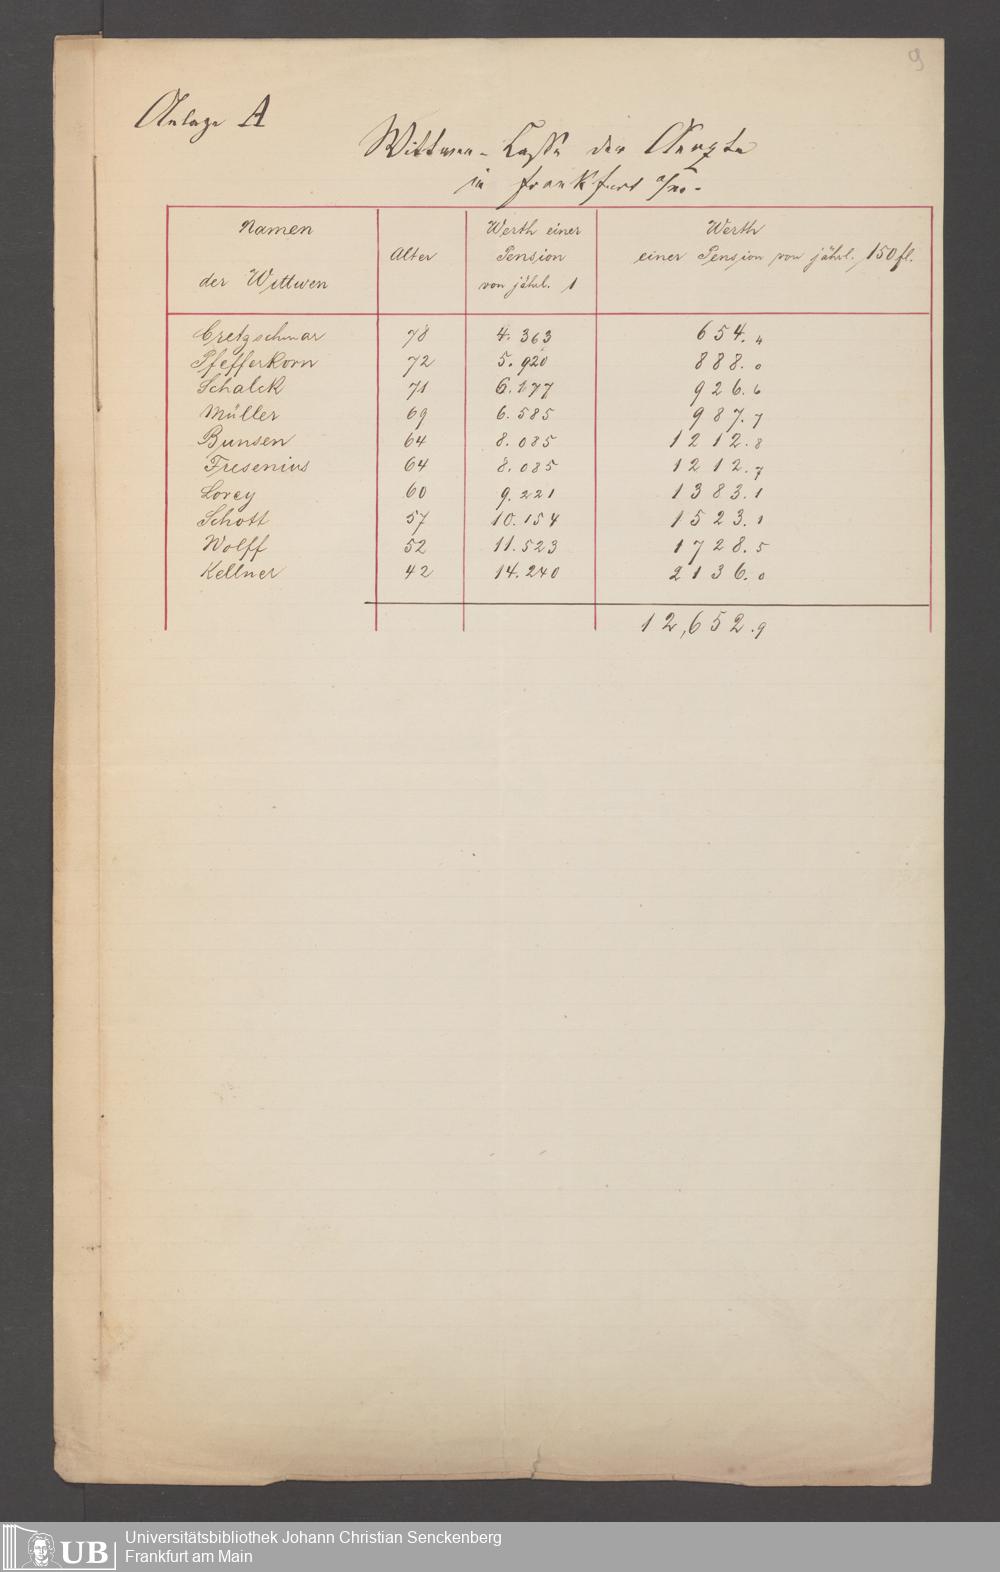 9
Anlage A
Wittwen-Casse der Aerzte
in Frankfurt a/M.-
Namen der Wittwen
Alter
Werth einer Pension von jährl. 1
Werth einer Pension von jährl. 150 fl.
Cretzschmar 78 4.363 654.4
Pfefferkorn 72 5.920 888.0
Schalck 71 6.177 926.6
Müller 69 6.585 987.7
Bunsen 64 8.085 1212.8
Fresenius 64 8.085 1212.7
Lorey 60 9.221 1383.1
Schott 57 10.154 1523.1
Wolff 52 11.523 1728.5
Kellner 42 14.240 2136.0
12,652.9
UB
Universitätsbibliothek Johann Christian Senckenberg
Frankfurt am Main